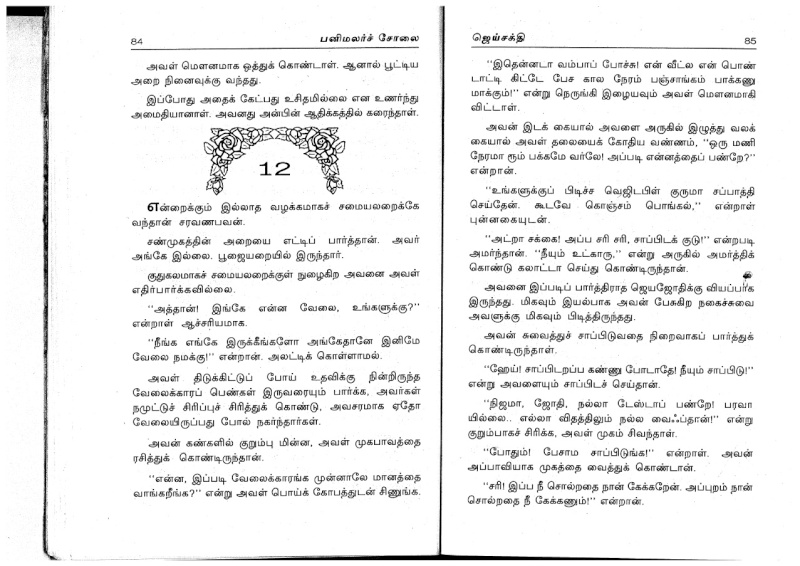 84
பனிமலர்ச் சோலை
அவள் மௌனமாக ஒத்துக் கொண்டாள். ஆனால் பூட்டிய
அறை நினைவுக்கு வந்தது.
இப்போது அதைக் கேட்பது உசிதமில்லை என உணர்ந்து
அமைதியானாள். அவனது அன்பின் ஆதிக்கத்தில் கரைந்தாள்.
12
என்றைக்கும் இல்லாத வழக்கமாகச் சமையலறைக்கே
வந்தான் சரவணபவன்.
சண்முகத்தின் அறையை எட்டிப் பார்த்தான். அவர்
அங்கே இல்லை. பூஜையறையில் இருந்தார்.
குதுகலமாகச் சமையலறைக்குள் நுழைகிற அவனை அவள்
எதிர்பார்க்கவில்லை.
"அத்தான்! இங்கே என்ன வேலை, உங்களுக்கு?"
என்றாள் ஆச்சரியமாக.
"நீங்க எங்கே இருக்கீங்களோ அங்கேதானே இனிமே
வேலை நமக்கு!" என்றான். அலட்டிக் கொள்ளாமல்.
அவள் திடுக்கிட்டுப் போய் உதவிக்கு நின்றிருந்த
வேலைக்காரப் பெண்கள் இருவரையும் பார்க்க, அவர்கள்
நமுட்டுச் சிரிப்புச் சிரித்துக் கொண்டு, அவசரமாக ஏதோ
வேலையிருப்பது போல் நகர்ந்தார்கள்.
அவன் கண்களில் குறும்பு மின்ன, அவள் முகபாவத்தை
ரசித்துக் கொண்டிருந்தான்.
"என்ன, இப்படி வேலைக்காரங்க முன்னாலே மானத்தை
வாங்கறீங்க?" என்று அவள் பொய்க் கோபத்துடன் சிணுங்க.
ஜெய்சக்தி
85
"இதென்னடா வம்பாப் போச்சு! என் வீட்ல என் பொண்
டாட்டி கிட்டே பேச கால நேரம் பஞ்சாங்கம் பாக்கணு
மாக்கும்!" என்று நெருங்கி இழையவும் அவள் மௌனமாகி
விட்டாள்.
அவன் இடக் கையால் அவளை அருகில் இழுத்து வலக்
கையால் அவள் தலையைக் கோதிய வண்ணம், "ஒரு மணி
நேரமா ரூம் பக்கமே வர்லே! அப்படி என்னத்தைப் பண்றே?"
என்றான்.
"உங்களுக்குப் பிடிச்ச வெஜிடபிள் குருமா சப்பாத்தி
செய்தேன். கூடவே கொஞ்சம் பொங்கல்," என்றாள்
புன்னகையுடன்.
"அட்றா சக்கை! அப்ப சரி சரி, சாப்பிடக் குடு!" என்றபடி
அமர்ந்தான். "நீயும் உட்காரு," என்று அருகில் அமர்த்திக்
கொண்டு கலாட்டா செய்து கொண்டிருந்தான்.
அவனை இப்படிப் பார்த்திராத ஜெயஜோதிக்கு வியப்பாக
இருந்தது. மிகவும் இயல்பாக அவன் பேசுகிற நகைச்சுவை
அவளுக்கு மிகவும் பிடித்திருந்தது.
அவன் சுவைத்துச் சாப்பிடுவதை நிறைவாகப் பார்த்துக்
கொண்டிருந்தாள்.
"ஹேய்! சாப்பிடறப்ப கண்ணு போடாதே! நீயும் சாப்பிடு!"
என்று அவளையும் சாப்பிடச் செய்தான்.
"நிஜமா, ஜோதி, நல்லா டேஸ்டாப் பண்றே! பரவா
யில்லை.. எல்லா விதத்திலும் நல்ல வைஃப்தான்!" என்று
குறும்பாகச் சிரிக்க, அவள் முகம் சிவந்தாள்.
"போதும்! பேசாம சாப்பிடுங்க!" என்றாள். அவன்
அப்பாவியாக முகத்தை வைத்துக் கொண்டான்.
"சரி! இப்ப நீ சொல்றதை நான் கேக்கறேன். அப்புறம் நான்
சொல்றதை நீ கேக்கணும்!" என்றான்.